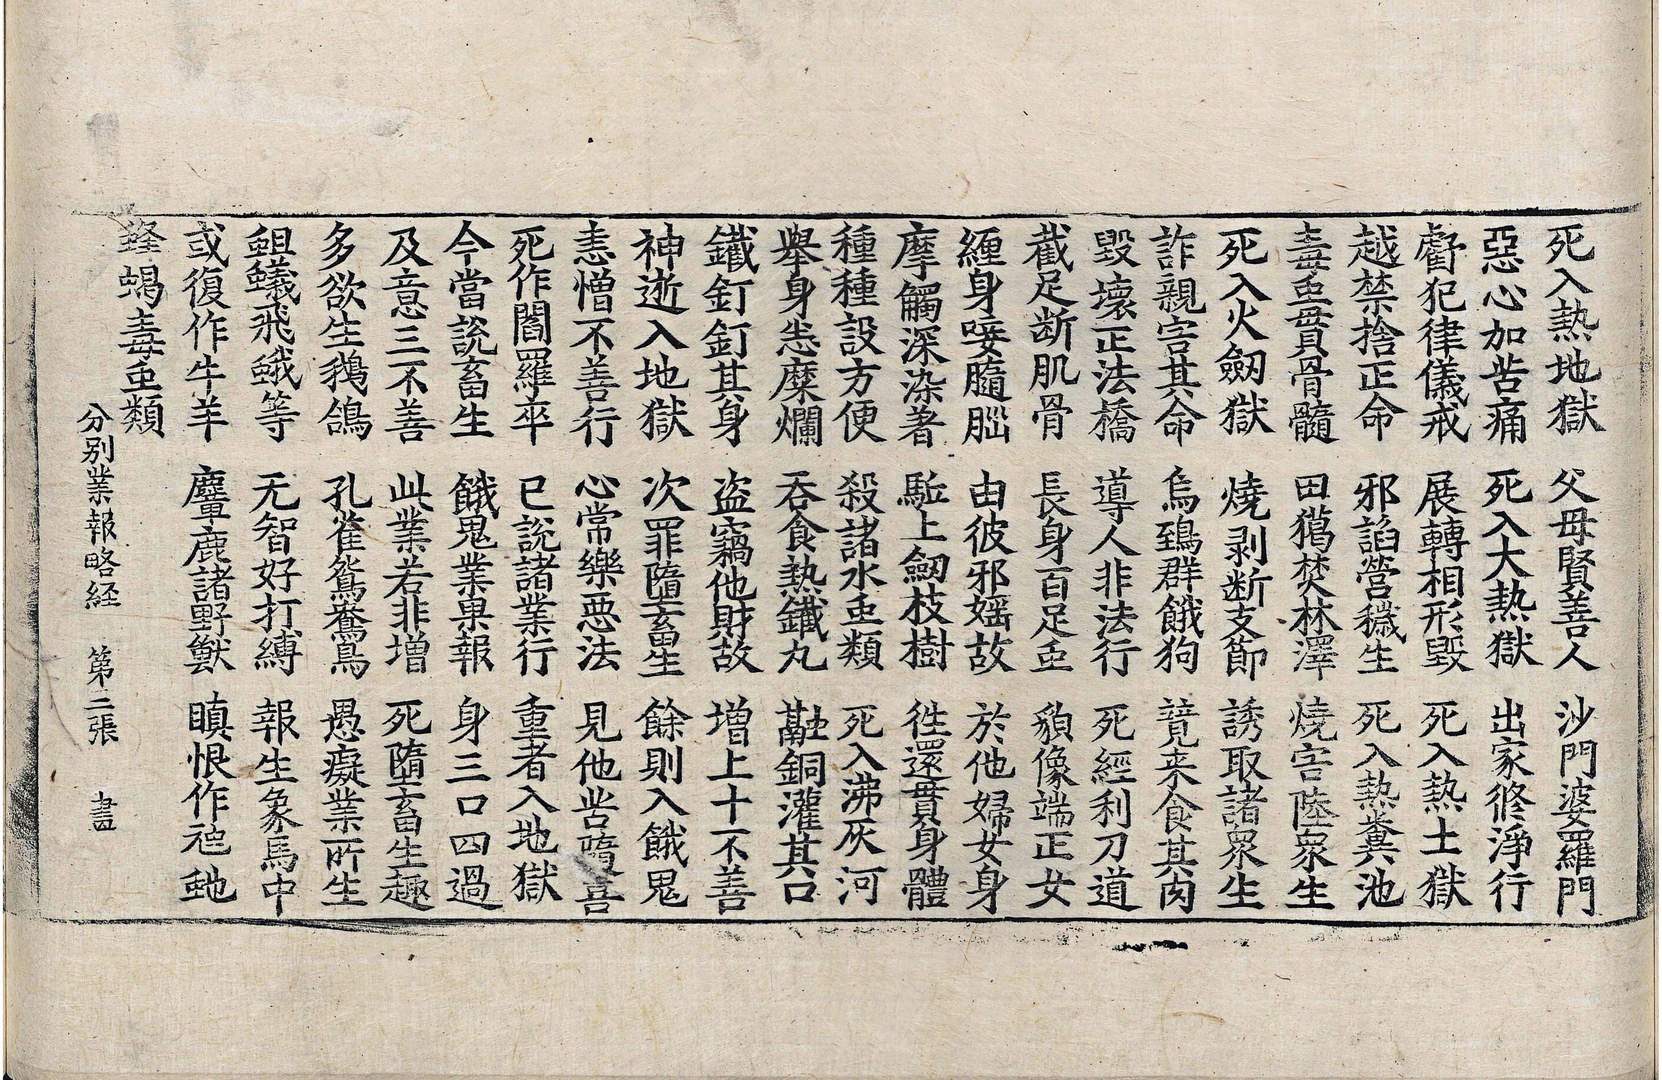 死入熱地獄　父母賢善人　沙門婆羅門
惡心加苦痛　死入大熱獄　出家修淨行
虧犯律儀戒　展轉相形毀　死入熱土獄
越禁捨正命　邪諂營穢生　死入熱糞池
毒虫貫骨髓　田獦焚林澤　燒害陸衆生
死入火劒獄　燒剥断支節　誘取諸衆生
詐親害其命　烏鵄群餓狗　競来食其肉
毀壞正法橋　導人非法行　死經利刀道
截足断肌骨　長身百足虫　貌像端正女
纏身唼髓𦛁　由彼邪婬故　於他婦女身
摩觸深染著　駈上劒枝樹　徃還貫身體
種種設方便　殺諸水虫類　死入沸灰河
舉身悉糜爛　吞食熱鐵丸　融銅灌其口
鐵釘釘其身　盗竊他財故　增上十不善
神逝入地獄　次罪墮畜生　餘則入餓鬼
恚憎不善行　心常樂惡法　見他苦隨喜
死作閻羅卒　已說諸業行　重者入地獄
今當說畜生　餓鬼業果報　身三口四過
及意三不善　此業若非增　死墮畜生趣
多欲生鵝鴿　孔雀鴛鴦鳥　愚癡業所生
蛆蟻飛蛾等　无智好打縛　報生象馬中
或復作牛羊　麞鹿諸野獸　瞋恨作虵
蜂蝎毒虫類
分别業報略経　第三張　畫